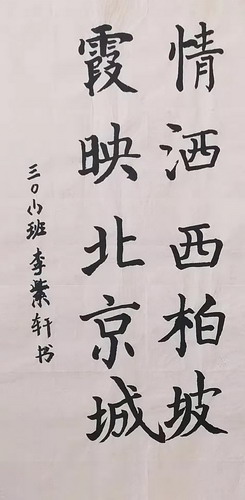 情洒西柏坡
霞映北京城
三〇八班 李紫轩书